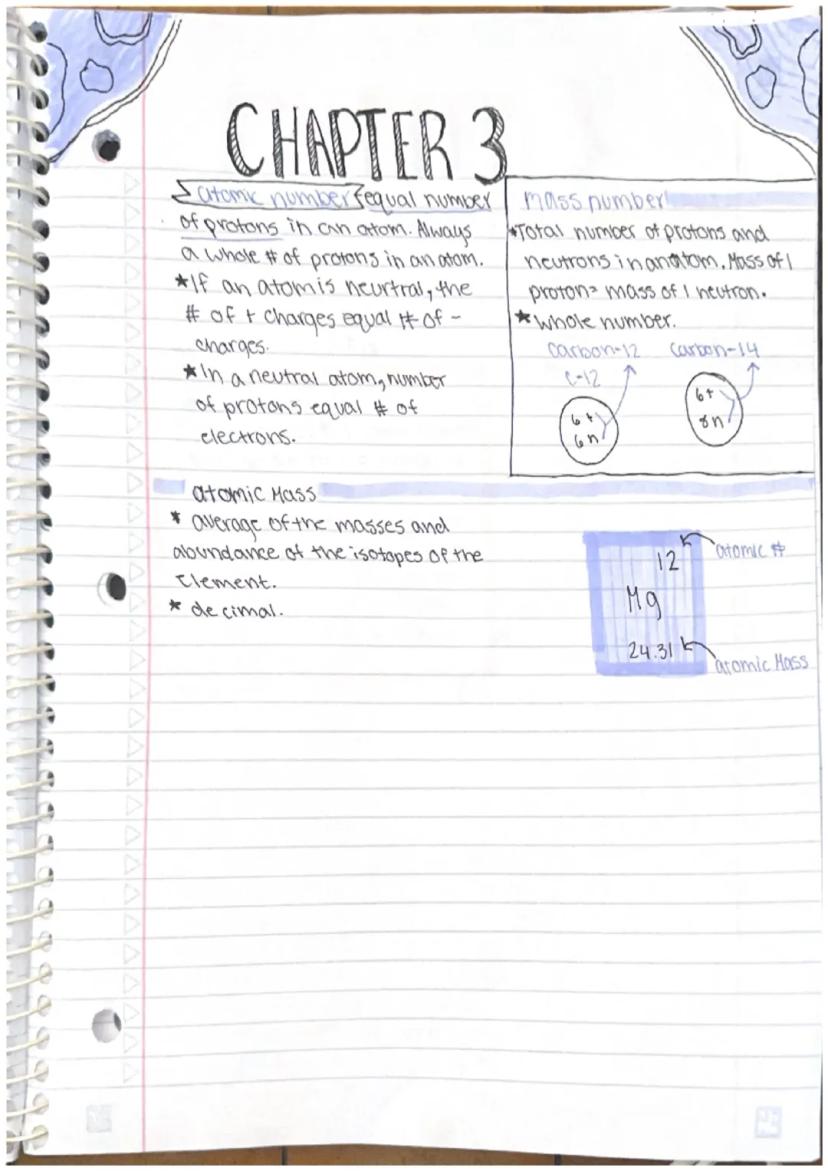 CHAPTER 3
atomic number equal number
of protons in an atom. Always
a whole # of protons in an atom.
*If an atom is neurtral, the
# of + charges equal # of -
charges.
*In a neutral atom, number
of protons equal # of
electrons.
mass number
*Total number of protons and
neutrons in an atom. Mass of 1
proton= mass of 1 neutron.
*whole number.
carbon-12 carbon-14
c-12
6+
6n
6+
8n
atomic Mass
* average of the masses and
abundance of the isotopes of the
element.
* decimal.
12
atomic #
Mg
24.31
atomic Mass